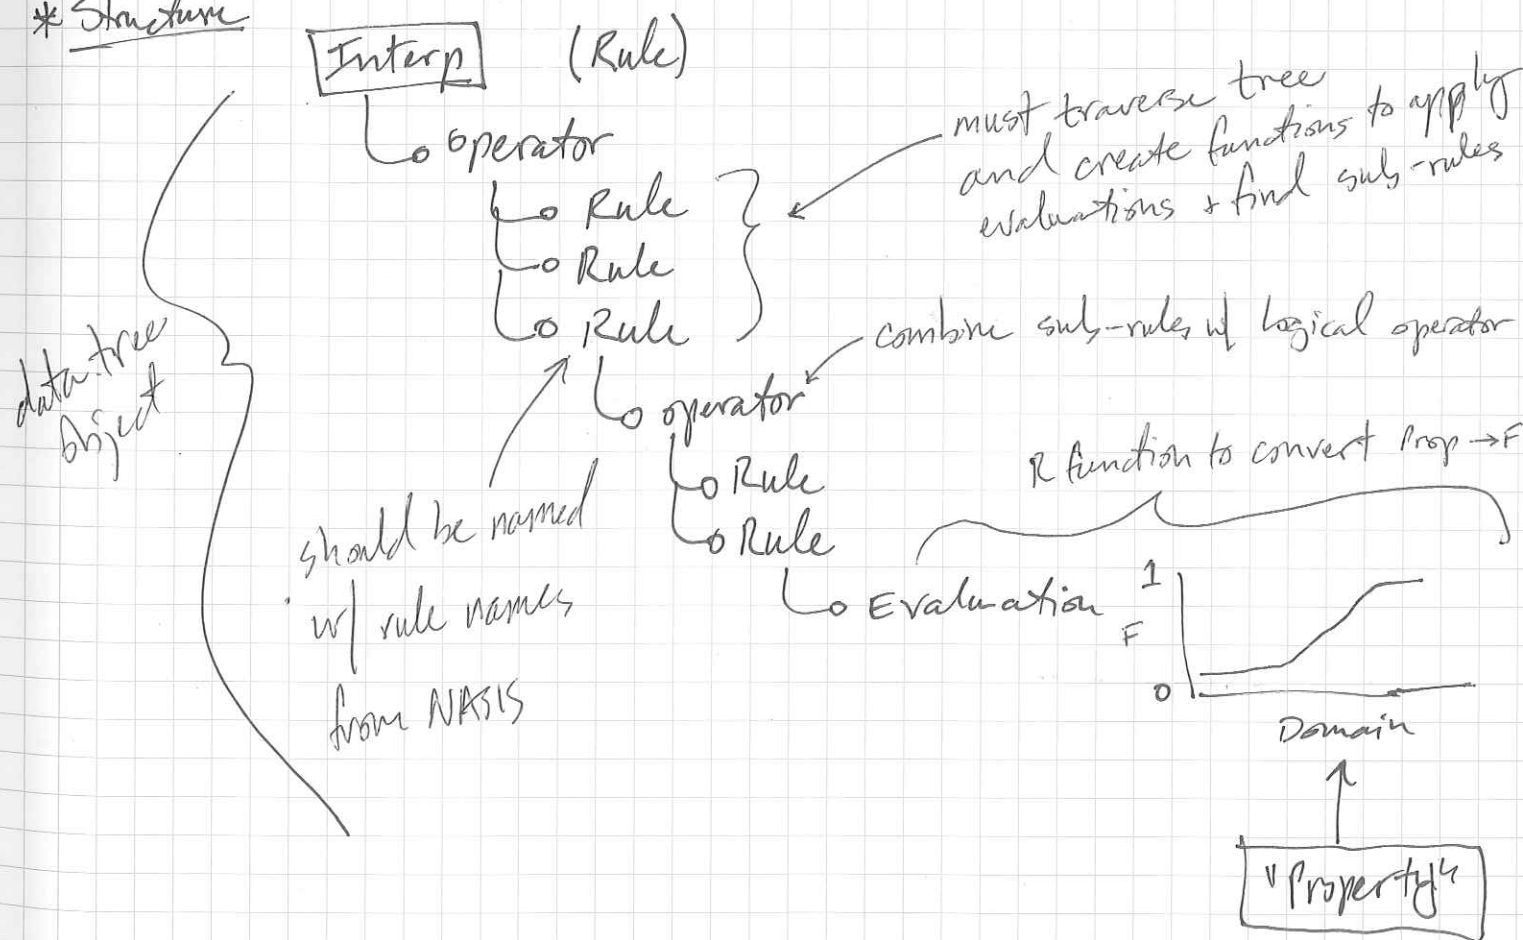 * Structure
Interp (Rule)
operator
Rule
Rule
Rule
must traverse tree
and create functions to apply
evaluations + find sub-rules
combine sub-rules w/ logical operator
operator
Rule
Rule
Evaluation
data.tree
object
should be named
w/ rule names
from NASIS
R function to convert Prop → F
1
F
0
Domain
"Property"